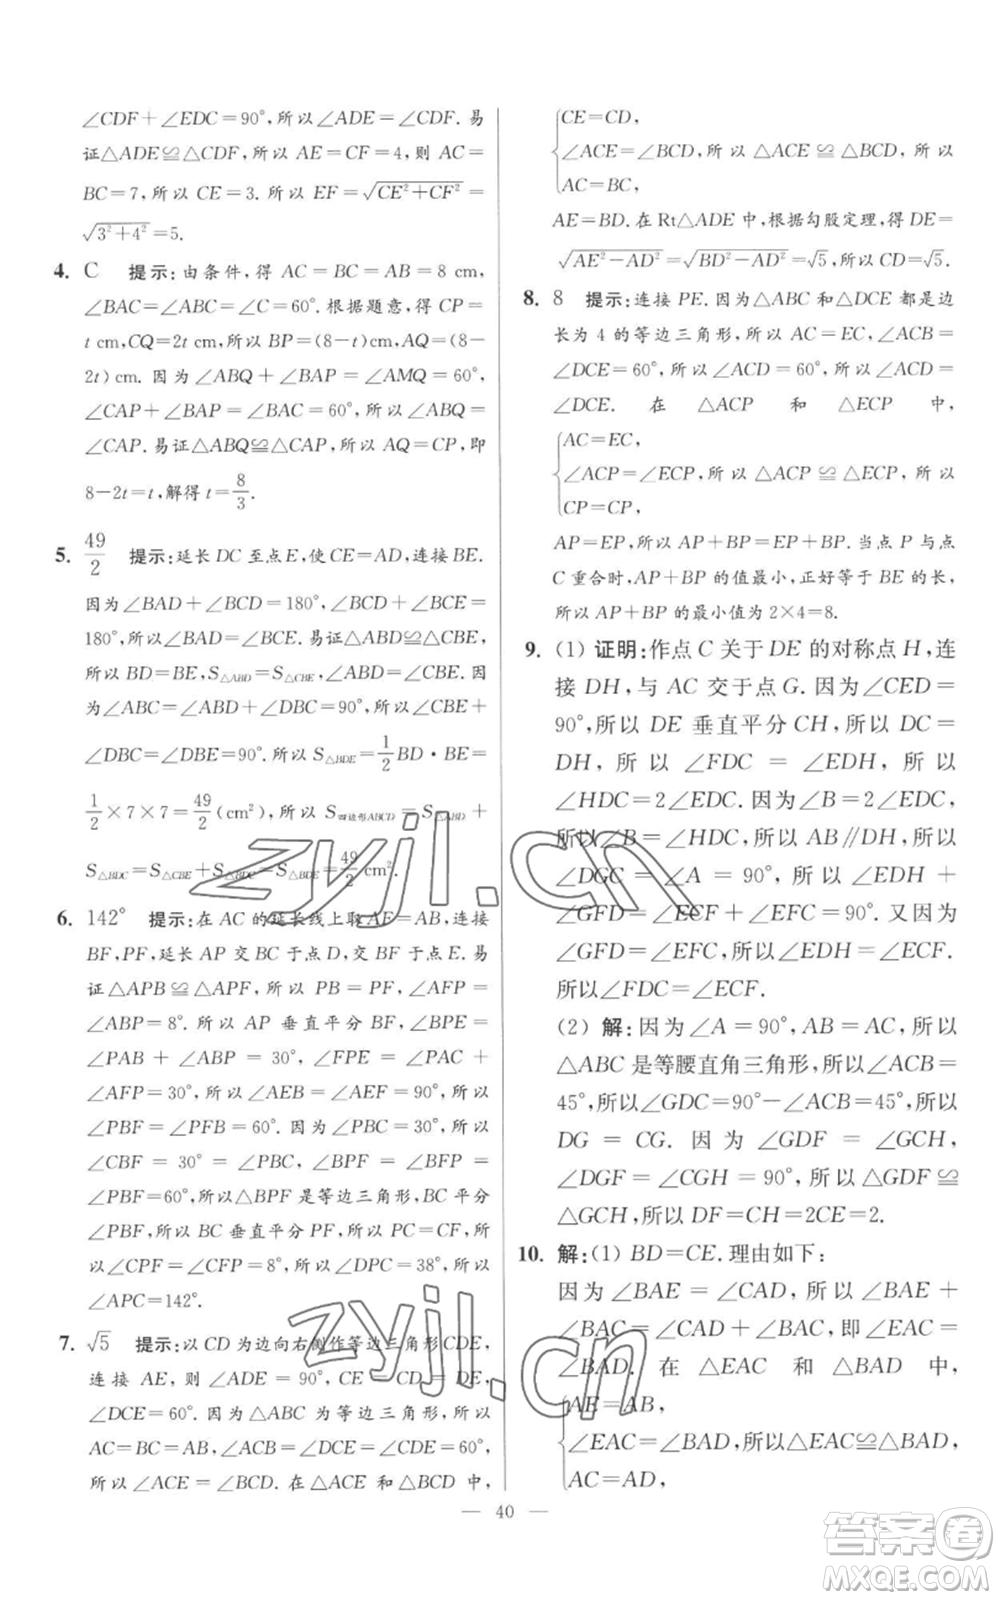 ∠CDF+∠EDC=90°,所以∠ADE=∠CDF.易
证△ADE≌△CDF,所以 AE=CF=4,则 AC=
BC=7,所以 CE=3.所以 EF=√(CE²+CF²)=
√(3²+4²)=5.
4. C 提示:由条件,得 AC=BC=AB=8 cm,
∠BAC=∠ABC=∠C=60°.根据题意,得 CP=
t cm,CQ=2t cm,所以 BP=(8-t)cm,AQ=(8-
2t)cm.因为∠ABQ+∠BAP=∠AMQ=60°,
∠CAP+∠BAP=∠BAC=60°,所以∠ABQ=
∠CAP.易证△ABQ≌△CAP,所以 AQ=CP,即
8-2t=t,解得 t=8/3.
5. 49/2 提示:延长 DC 至点 E,使 CE=AD,连接 BE.
因为∠BAD+∠BCD=180°,∠BCD+∠BCE=
180°,所以∠BAD=∠BCE.易证△ABD≌△CBE,
所以 BD=BE,S△ABD=S△CBE,∠ABD=∠CBE.因
为∠ABC=∠ABD+∠DBC=90°,所以∠CBE+
∠DBC=∠DBE=90°.所以 S△BDE=1/2BD·BE=
1/2×7×7=49/2(cm²),所以 S四边形ABCD=S△ABD+
S△BDC=S△CBE+S△BDC=S△BDE=49/2 cm².
6. 142° 提示:在 AC 的延长线上取 AF=AB,连接
BF,PF,延长 AP 交 BC 于点 D,交 BF 于点 E.易
证△APB≌△APF,所以 PB=PF,∠AFP=
∠ABP=8°.所以 AP 垂直平分 BF,∠BPE=
∠PAB+∠ABP=30°,∠FPE=∠PAC+
∠AFP=30°,所以∠AEB=∠AEF=90°,所以
∠PBF=∠PFB=60°.因为∠PBC=30°,所以
∠CBF=30°=∠PBC,∠BPF=∠BFP=
∠PBF=60°,所以△BPF是等边三角形,BC平分
∠PBF,所以 BC 垂直平分 PF,所以 PC=CF,所
以∠CPF=∠CFP=8°,所以∠DPC=38°,所以
∠APC=142°.
7. √5 提示:以 CD 为边向右侧作等边三角形 CDE,
连接 AE,则∠ADE=90°,CE=CD=DE,
∠DCE=60°.因为△ABC为等边三角形,所以
AC=BC=AB,∠ACB=∠DCE=∠CDE=60°,
所以∠ACE=∠BCD.在△ACE和△BCD中,
CE=CD,
∠ACE=∠BCD,所以△ACE≌△BCD,所以
AC=BC,
AE=BD.在 Rt△ADE 中,根据勾股定理,得 DE=
√(AE²-AD²)=√(BD²-AD²)=√5,所以 CD=√5.
8. 8 提示:连接 PE.因为△ABC和△DCE都是边
长为 4 的等边三角形,所以 AC=EC,∠ACB=
∠DCE=60°,所以∠ACD=60°,所以∠ACD=
∠DCE. 在 △ACP 和 △ECP 中,
AC=EC,
∠ACP=∠ECP,所以△ACP≌△ECP,所以
CP=CP,
AP=EP,所以 AP+BP=EP+BP.当点 P 与点
C 重合时,AP+BP 的值最小,正好等于 BE 的长,
所以 AP+BP 的最小值为 2×4=8.
9. (1) 证明:作点 C 关于 DE 的对称点 H,连
接 DH,与 AC 交于点 G.因为∠CED=
90°,所以 DE 垂直平分 CH,所以 DC=
DH,所以∠FDC=∠EDH,所以
∠HDC=2∠EDC.因为∠B=2∠EDC,
所以∠B=∠HDC,所以 AB∥DH,所以
∠DGC=∠A=90°,所以∠EDH+
∠GFD=∠ECF+∠EFC=90°.又因为
∠GFD=∠EFC,所以∠EDH=∠ECF.
所以∠FDC=∠ECF.
(2) 解:因为∠A=90°,AB=AC,所以
△ABC是等腰直角三角形,所以∠ACB=
45°,所以∠GDC=90°-∠ACB=45°,所以
DG=CG.因为∠GDF=∠GCH,
∠DGF=∠CGH=90°,所以△GDF≌
△GCH,所以 DF=CH=2CE=2.
10. 解:(1) BD=CE.理由如下:
因为∠BAE=∠CAD,所以∠BAE+
∠BAC=∠CAD+∠BAC,即∠EAC=
∠BAD.在△EAC和△BAD中,
AE=AB,
∠EAC=∠BAD,所以△EAC≌△BAD,
AC=AD,
— 40 —
zyjl.cn
zyjl.cn
答案卷
MXQE.COM